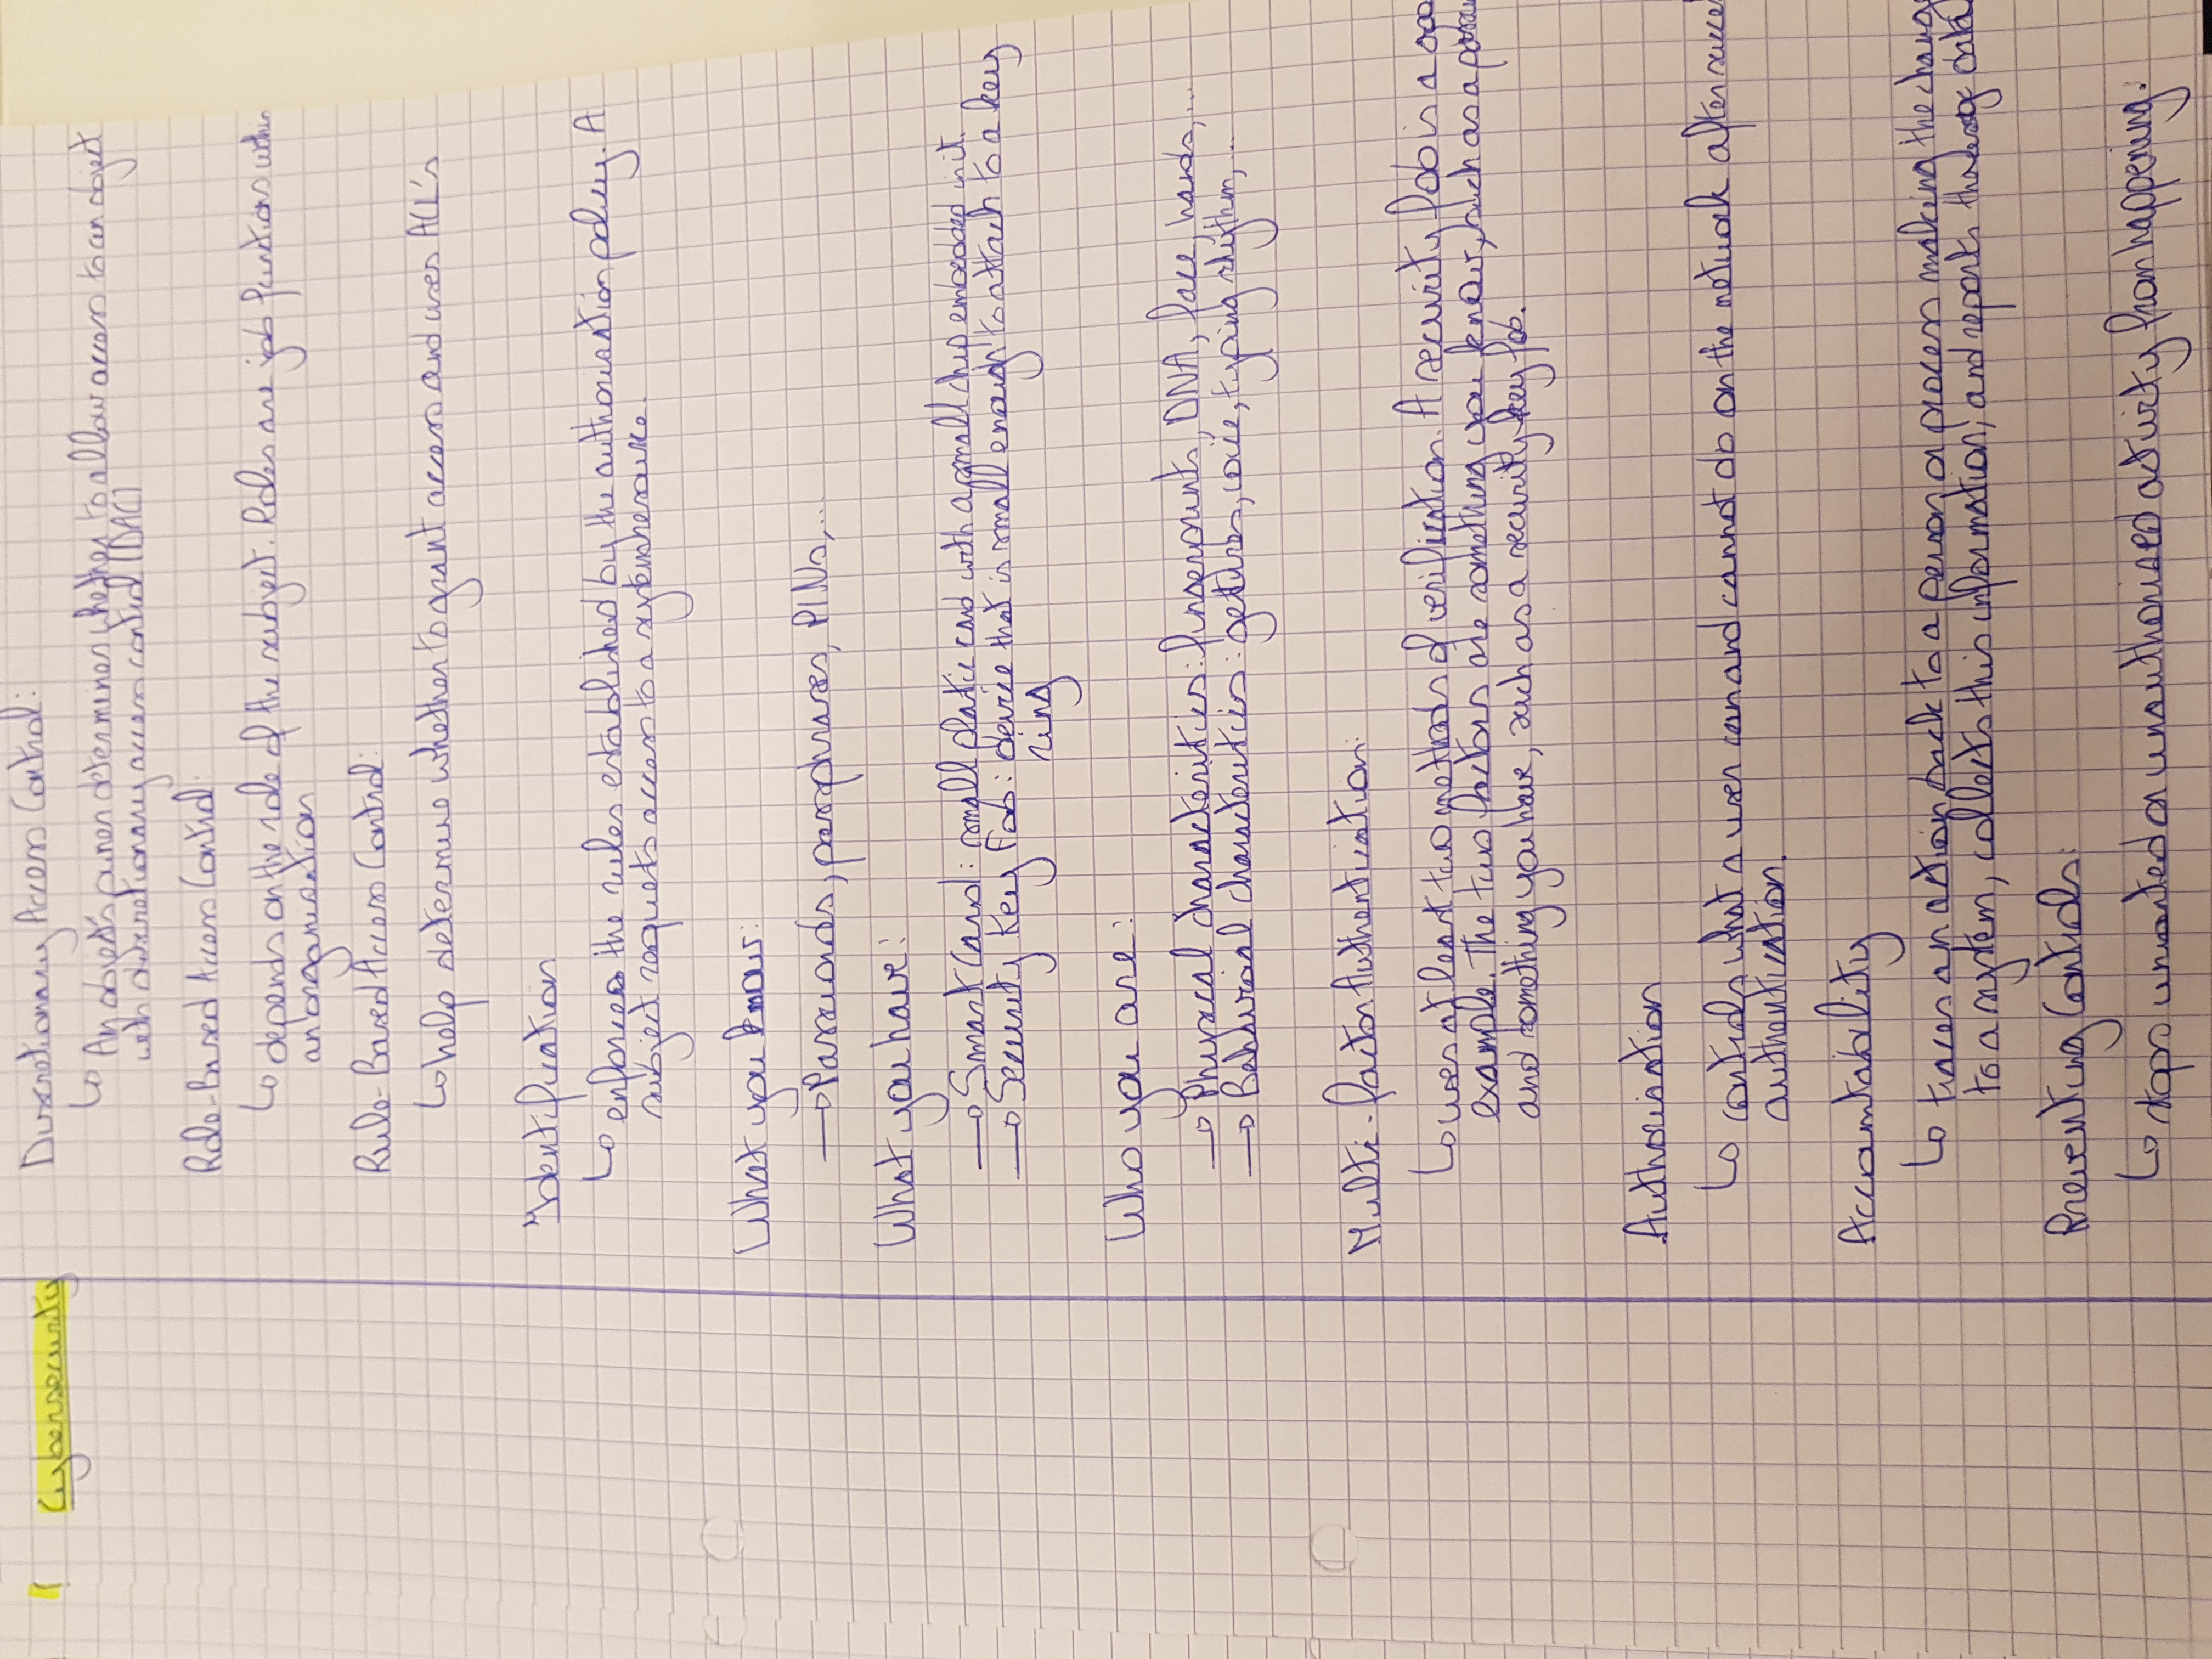 Cybersecurity
Discretionary Access Control:
↳ An object's owner determines whether to allow access to an object
with discretionary access control (DAC)
Role-Based Access Control:
↳ depends on the role of the subject. Roles are job functions within
an organisation
Rule-Based Access Control:
↳ help determine whether to grant access and uses ACL's
Identification
↳ enforces the rules established by the authorisation policy. A
subject requets access to a system resource.
What you know:
→ Passwords, passphrases, PINs,...
What you have:
→ Smart Card: small plastic card with a small chip embedded in it.
→ Security Key Fob: device that is small enough to attach to a key
ring
Who you are:
→ Physical characteristics: fingerprints, DNA, face, hands,...
→ Behavioral characteristics: gestures, voice, typing rhythm,...
Multi-factor Authentication:
↳ uses at least two methods of verification. A security fob is a goo
example. The two factors are something you know, such as a passw
and something you have, such as a security key fob.
Authorisation
↳ controls what a user can and cannot do on the network after succe
authentication.
Accountability
↳ traces an action back to a person or process making the chang
to a system, collects this information, and reports the usage data
Preventing Controls:
↳ stops unwanted or unauthorized activity from happening.